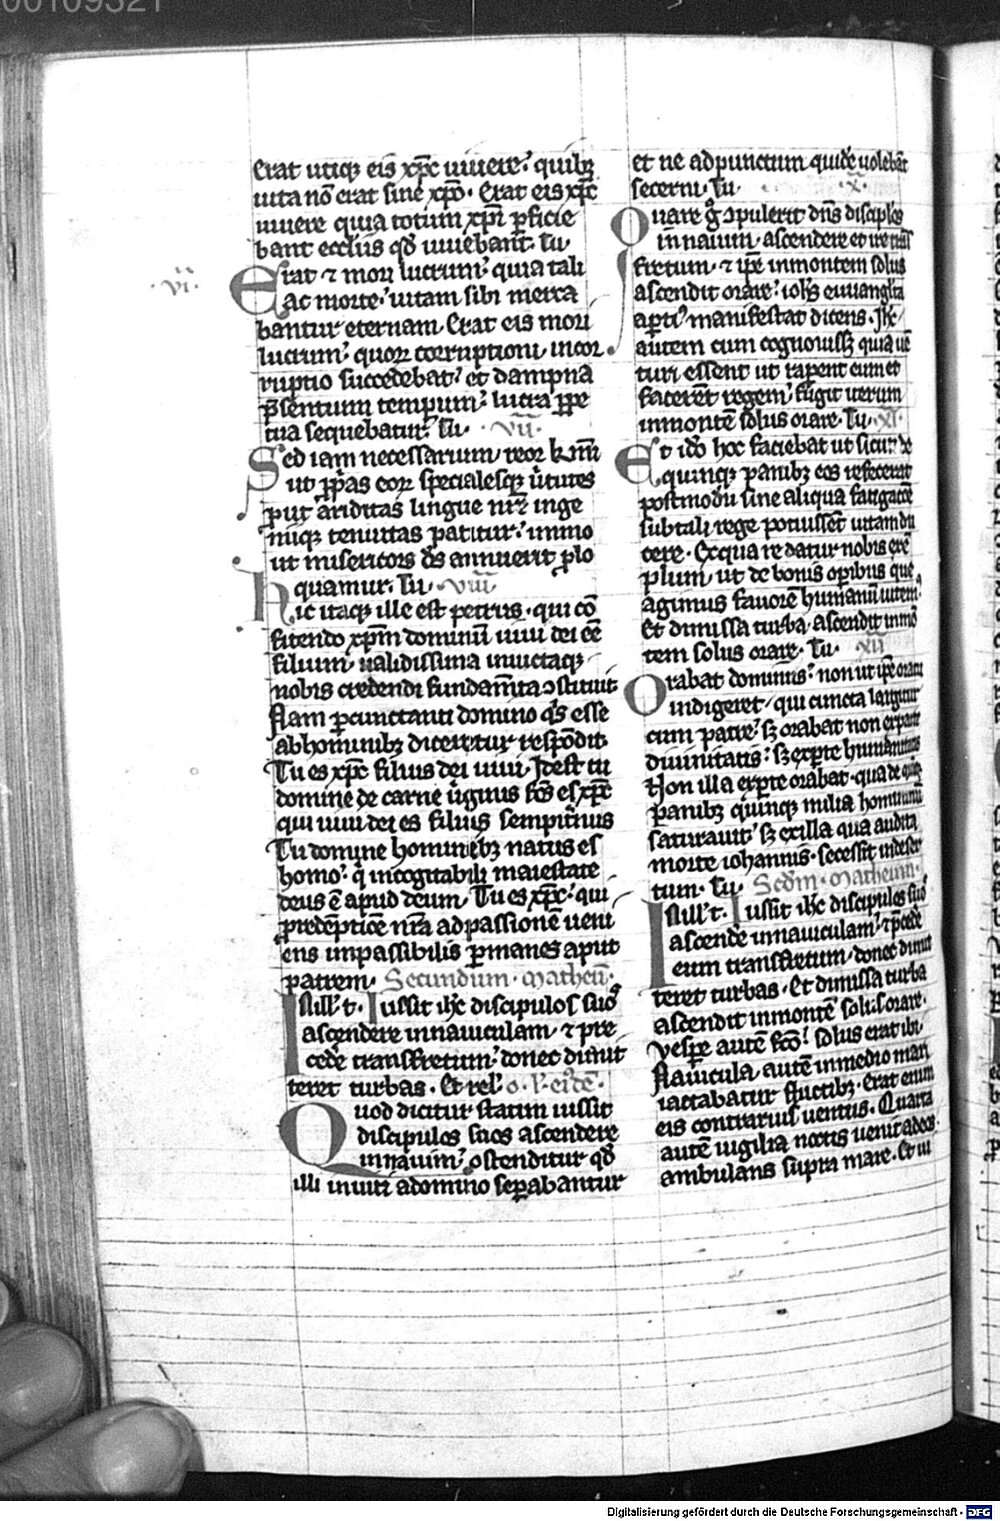 00109321
erat utiq; eis xp̄c uiuere. quib;
uita nō erat sine xp̄o. Erat eis xp̄c
uiuere quia totum xp̄i p̄ficie
bant eccl̄iis qd̄ uiuebant. Tu
.vi.
Erat ⁊ mori lucrum. quia tali
ac morte. uitam sibi merca
bantur eternam. Erat eis mori
lucrum. quoꝝ corruptioni. incor
ruptio succedebat. et dampna
p̄sentium tempoꝝ. lucra ꝑpe
tua sequebatur. Tu. .vii.
Sed iam necessarium reor k̄mi
ut ꝓpas eoꝝ specialesq; ūtutes
put ariditas lingue nr̄e inge
niiq; tenuitas patitur. immo
ut misericors ds̄ annuerit ꝓlo
quamur. Tu. .viii.
hic itaq; ille est petrus. qui cō
fitendo xp̄m dominū uiui dei eē
filium. ualidissima inuictaq;
nobis credendi fundam̄ta ɔstituit
Nam ꝑcunctanti domino q̄s esse
ab hominib; diceretur respōdit
Tu es xp̄c filius dei uiui. Idest tu
domine de carne ūginis fcs̄ es xp̄c
qui uiui dei es filius sempit̄nus
Tu domine hominib; natus es
homo. q̄ incogitabili maiestate
deus ē apud deum. Tu es xp̄c. qui
p̄redēptiōe nr̄a ad passionē ueni
ens impassibilis ꝑmanes aput
patrem. Secundum. matheū.
In ill' t. Iussit ih̄c discipulos suos
ascendere in nauiculam. ⁊ pre
cede transfretum. donec dimit
teret turbas. Et rel'. o. l'. eiꝰdē.
Quod dicitur statim iussit
discipulos suos ascendere
in nauim. ostenditur qd̄
illi inuiti a domino seꝑabantur
et ne ad punctum quidē uolebāt
secerni. Tu. .x.
Quare g̊ ɔpulerit dn̄s discipl'os
in nauim. ascendere et ire trās
fretum. ⁊ ip̄e in montem solus
ascendit orare. ioh̄s euuangl'ta
aꝑti' manifestat dicens. Ih̄c
autem cum cognouiss; quia uē
turi essent ut raꝑent eum et
facerēt regem. fugit iterum
in montē solus orare. Tu. xi.
Et idō hoc faciebat ut sicut de
quinq; panib; eos refecerat
postmodū sine aliqua fatigacōe
sub tali rege potuissēt uitam du
cere. Ex qua re datur nobis exē
plum. ut de bonis oꝑibus que
agimus fauorē humanū uitem.
Et dimissa turba. ascendit in mō
tem solus orare. Tu. xii
Orabat dominus. non ut ip̄e oratu
indigeret. qui cuncta largitur
cum patre. s; orabat non ex parte
diuinitatis. s; ex ꝑte humanitatis
Non illa ex ꝑte orabat. qua de qi̅q;
panib; quinq; milia hominum
saturauit. s; ex illa qua audita
morte iohannis. secessit in deser
tum. Tu. Scdm. matheum.
In ill' t. Iussit ih̄c discipulos suos
ascendē in nauiculam. ⁊ p̄cedē
eum transfretum. donec dimit
teret turbas. Et dimissa turba
ascendit in montē soli' orare.
Vespe autē fcō. solus erat ibi.
Nauicula autē in medio mari
iactabatur fluctib;. Erat enim
eis contrarius uentus. Quarta
autē uigilia noctis uenit ad eos
ambulans supra mare. Et ui
Digitalisierung gefördert durch die Deutsche Forschungsgemeinschaft - DFG